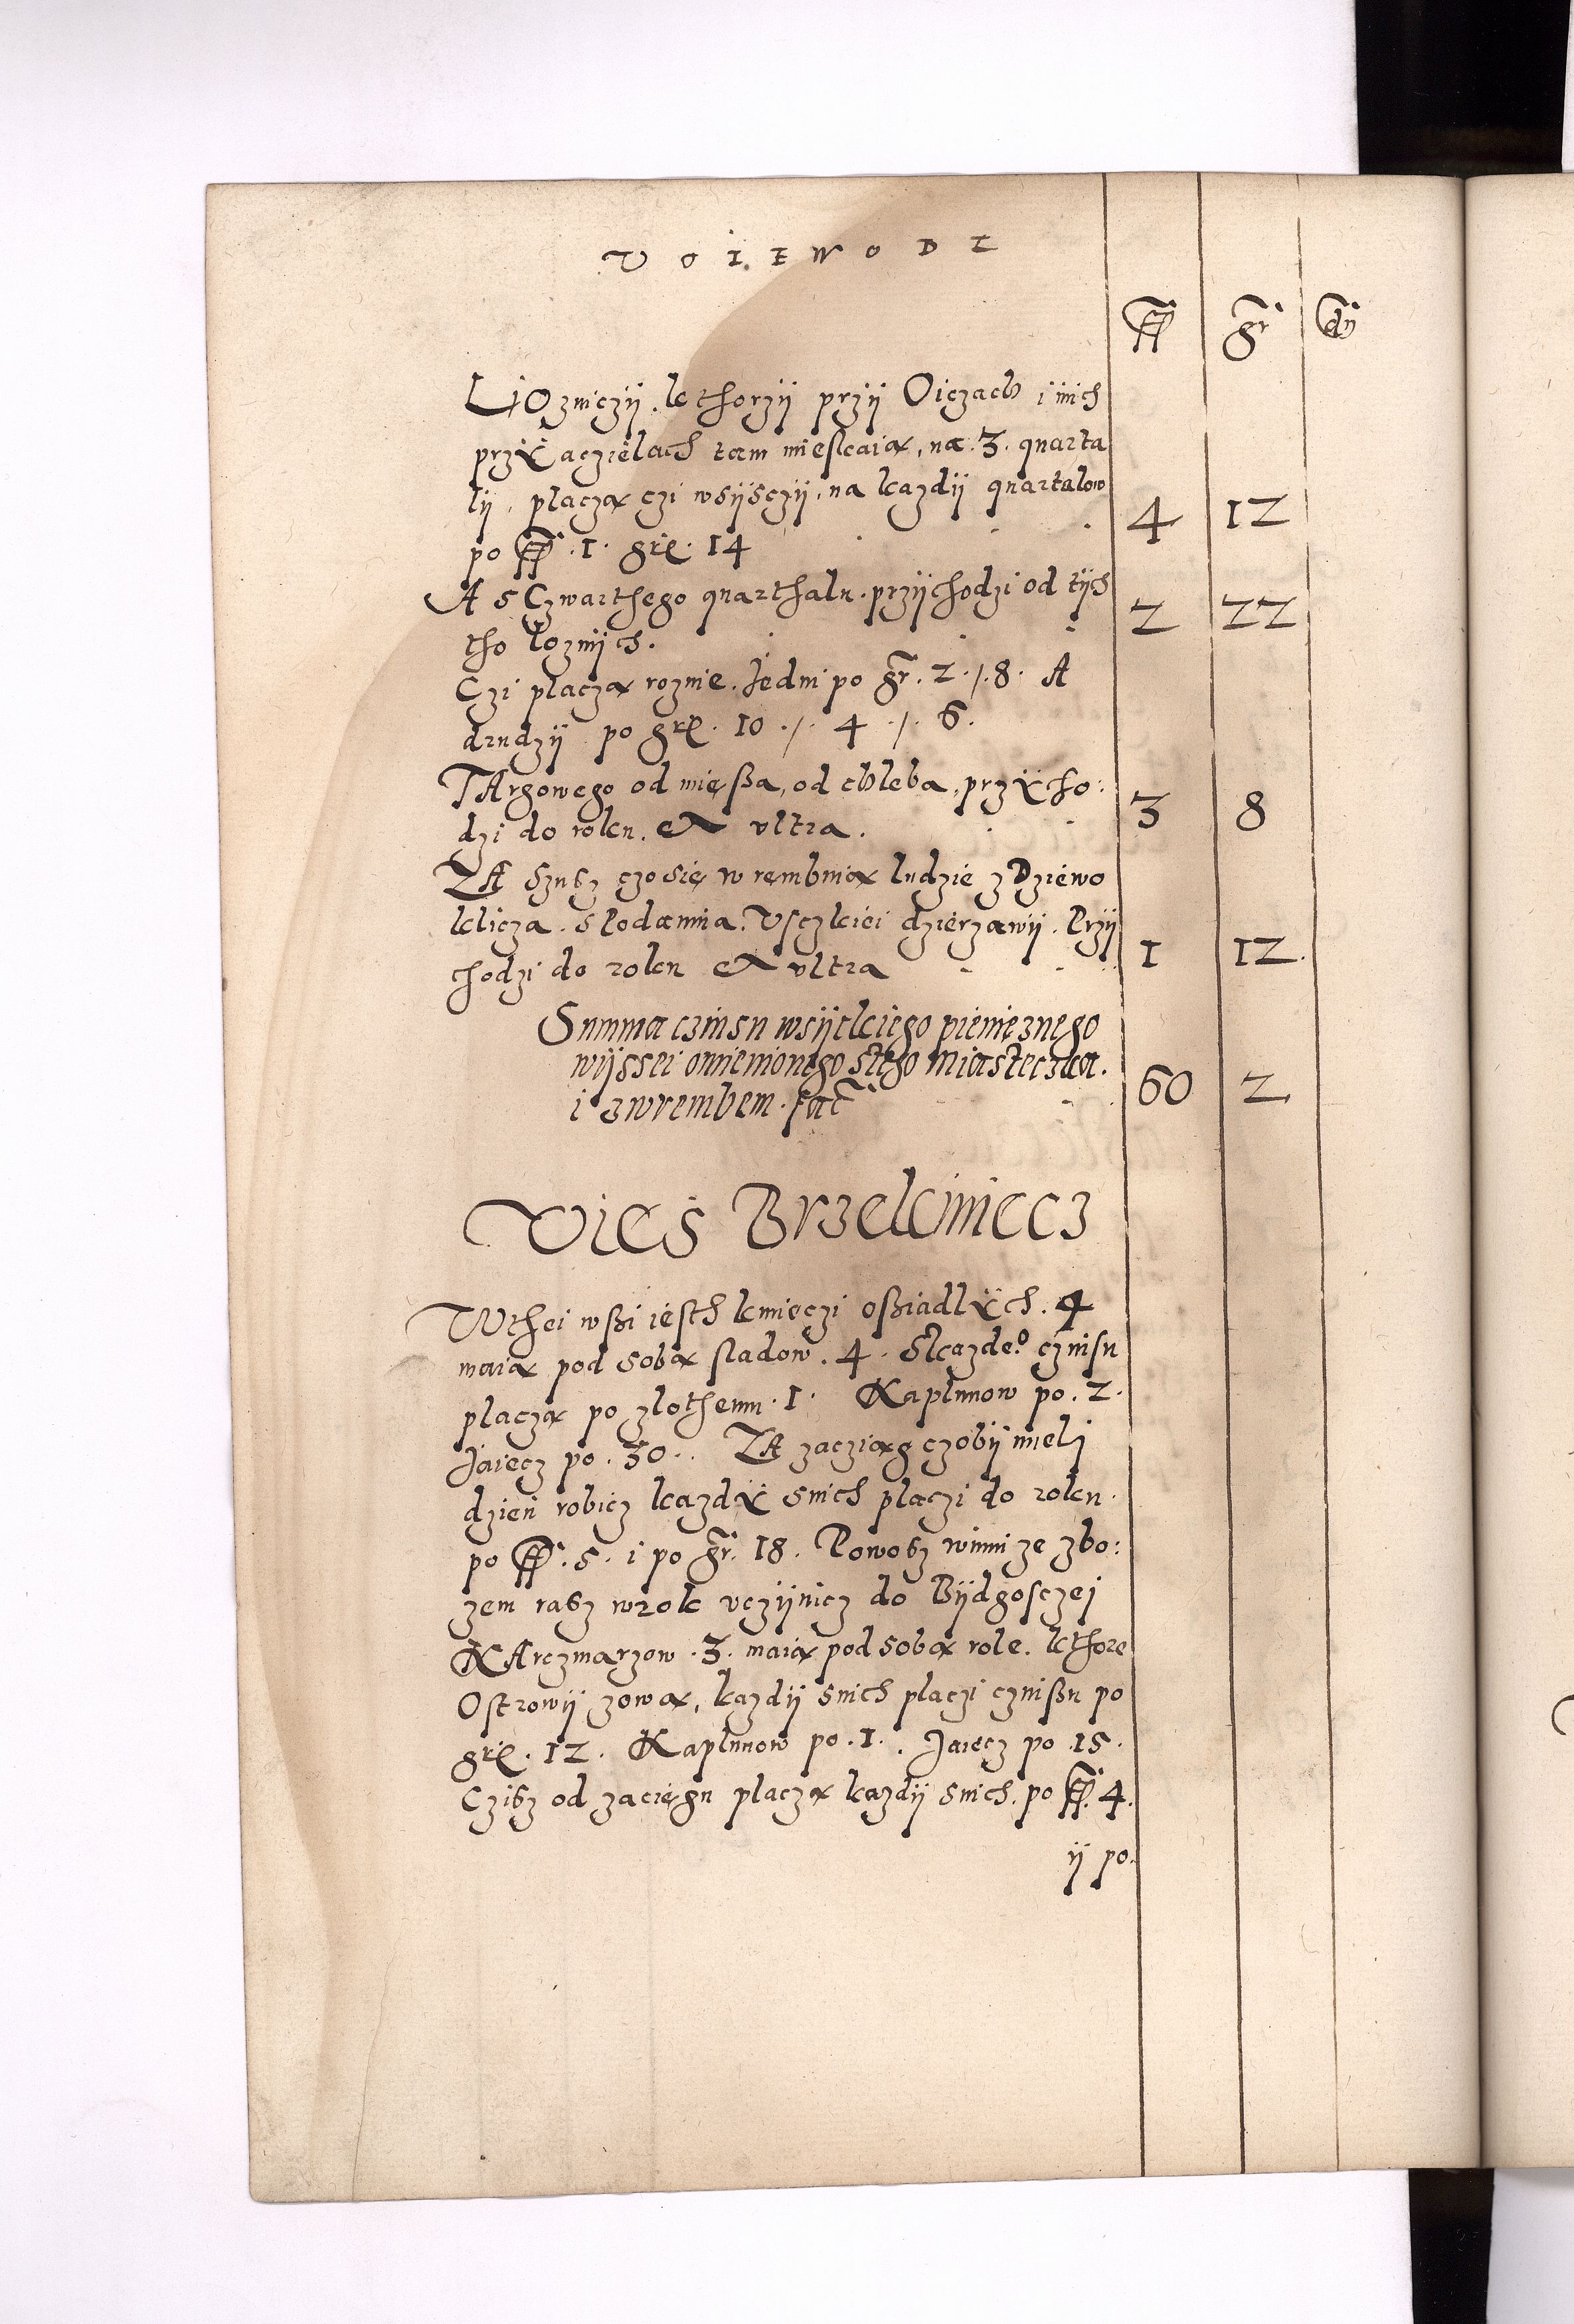 VOIEWODI
ff gr dn
LJOzniczÿ, kthorzÿ przÿ Oiczach i inich
przÿaczielach tam mieskaią, na .3. quarta
lÿ, płaczą czi wsÿsczÿ, na kazdÿ quartalow
po ff .1. gr. 14 4 12
A s Czwarthego quarthalu. przÿchodzi od tÿch
tho lozнÿch. 2 22
Czi płaczą roznie. Jedni po gr. 2 ./. 8. A
drudzÿ po gr. 10 ./. 4 ./. 6.
TArgowego od mięßa, od chleba, przÿcho:
dzi do roku. et vltra. 3 8
ZA Szusz czo się w rembuią ludzie z Dziewo
klicza. s Podamnia. Vsczkiei dzierzawÿ. Przÿ
chodzi do roku et vltra 1 12
Summa czinsu wsÿtkiego pieniężnego
wÿssei omienionego s tego miasteczka.
i z wrembem. facit 60 2
Vieś Brzekiniecz
W thei wßi iesth kmieczi oßiadlÿch. 4
maią pod sobą sladow. 4. S kazdego czinsu
płaczą po złothemu .1. Kapłunow po. 2.
Jaiecz po. 30. ZA zacziąg czobÿ mieli
dzień robicz kazdÿ s nich płaczi do roku.
po ff. 5. i po gr. 18. Powosz winni ze zbo:
zem rasz w rok vczÿnicz do Bÿdgosczej
KArczmarzow .3. maią pod sobą role. kthore
Ostrowÿ zową, kazdÿ s nich płaczi czinßu po
gr. 12. Kapłunow po .1. Jaiecz po .15.
Czisz od zaciegu płaczą kazdÿ s nich. po ff. 4.
ÿ po.